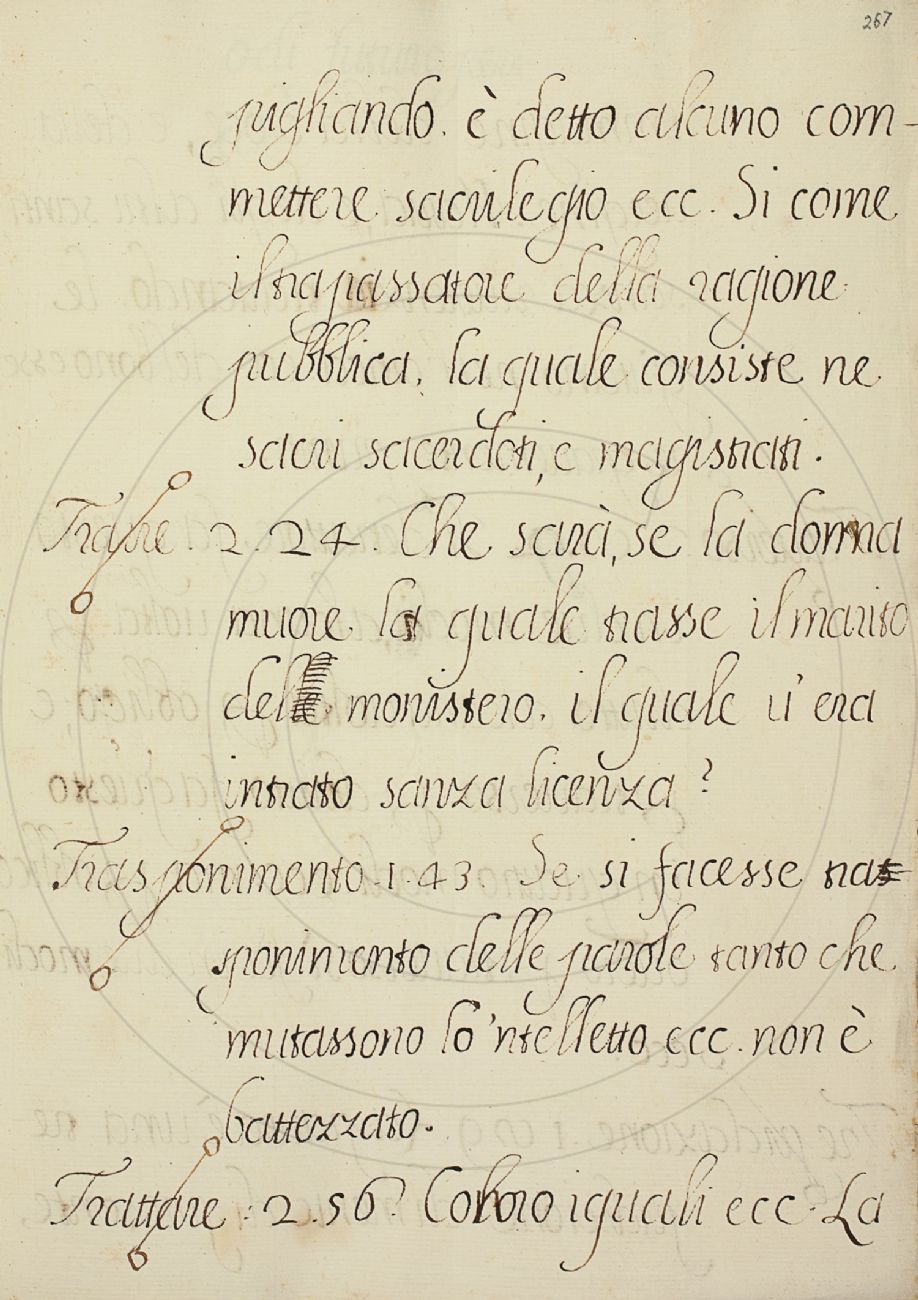 267
pigliando. è detto alcuno com-
mettere sacrilegio ecc. Si come
il trapassatore della ragione
pubblica, la quale consiste ne
sacri sacerdoti, e magistrati.
Trarre. 2. 24. Che sarà, se la donna
muore la quale trasse il marito
del monistero, il quale u' era
intrato sanza licenza?
Trasponimento. 1. 43. Se si facesse tras
ponimento delle parole tanto che
mutassono lo 'ntelletto ecc. non è
battezzato.
Trattare. 2. 56. Coloro iquali ecc. La